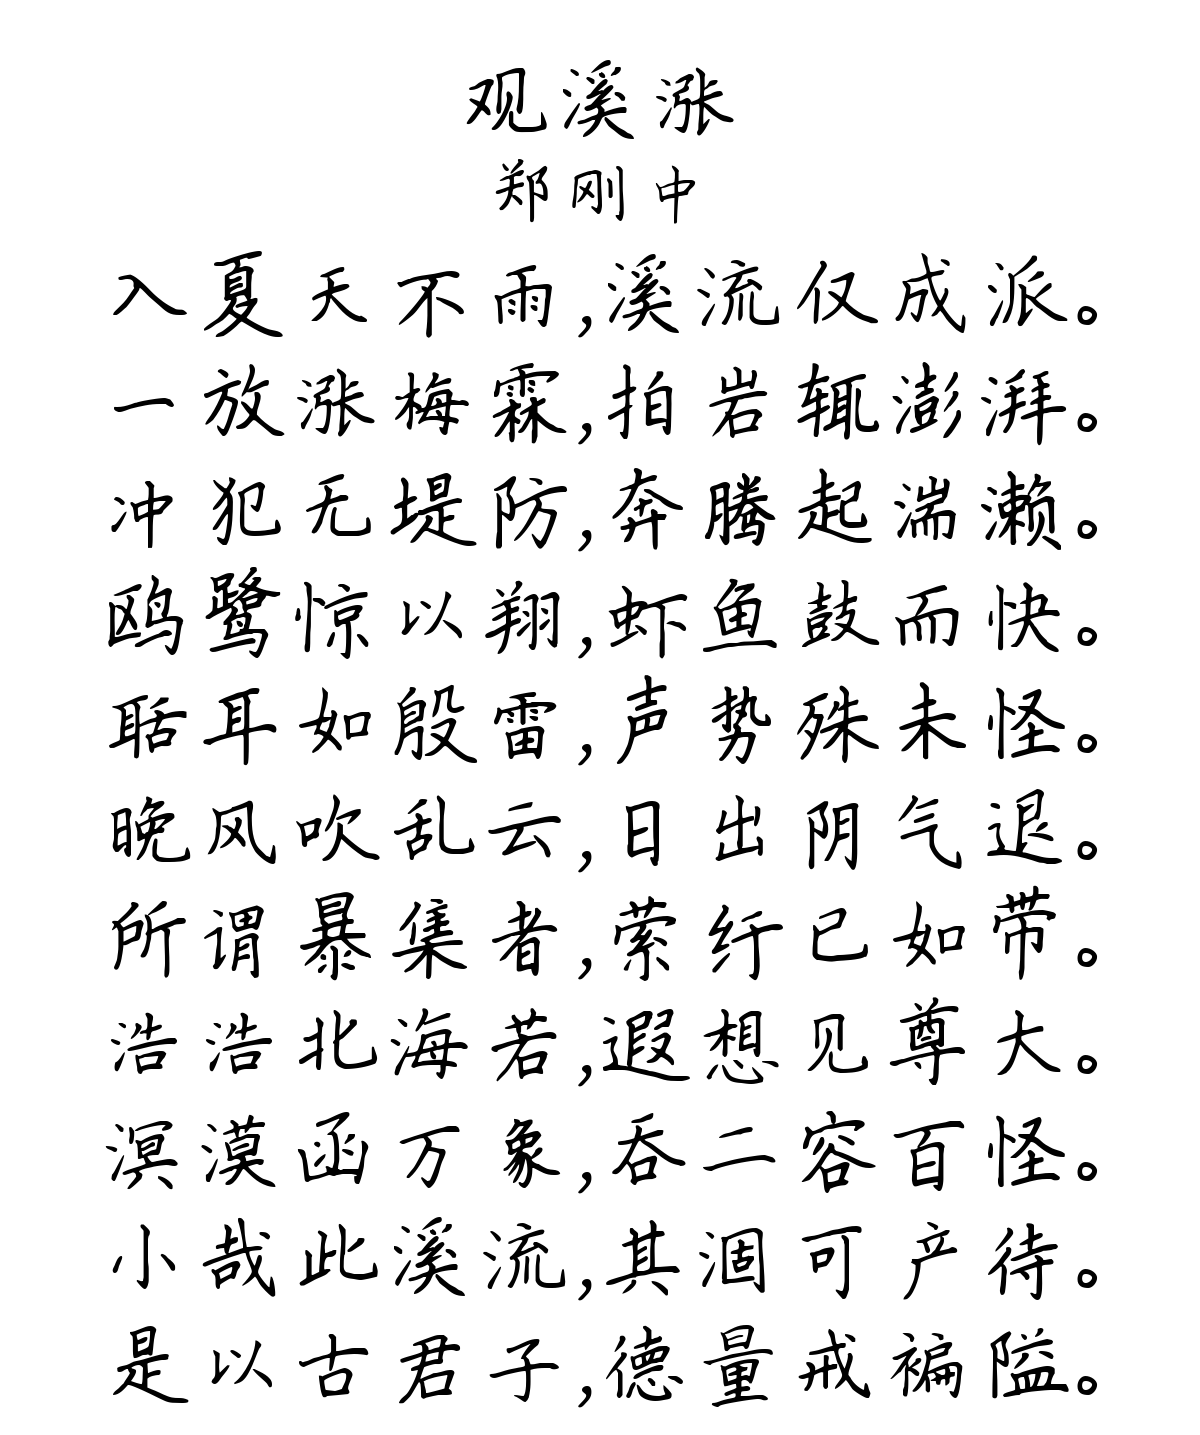 观溪涨
郑刚中
入夏天不雨,溪流仅成派。
一放涨梅霖,拍岩辄澎湃。
冲犯无堤防,奔腾起湍濑。
鸥鹭惊以翔,虾鱼鼓而快。
聒耳如殷雷,声势殊未怪。
晚风吹乱云,日出阴气退。
所谓暴集者,萦纡已如带。
浩浩北海若,遐想见尊大。
溟漠函万象,吞二容百怪。
小哉此溪流,其涸可产待。
是以古君子,德量戒褊隘。